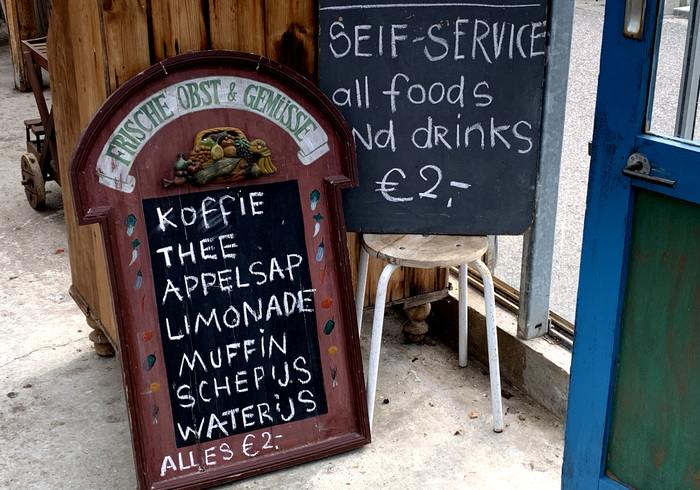 FRISCHE OBST & GEMÜSSE
KOFFIE
THEE
APPELSAP
LIMONADE
MUFFIN
SCHEPIJS
WATERIJS
ALLES €2.-
SElF-SERVICE
all foods
and drinks
€2,-